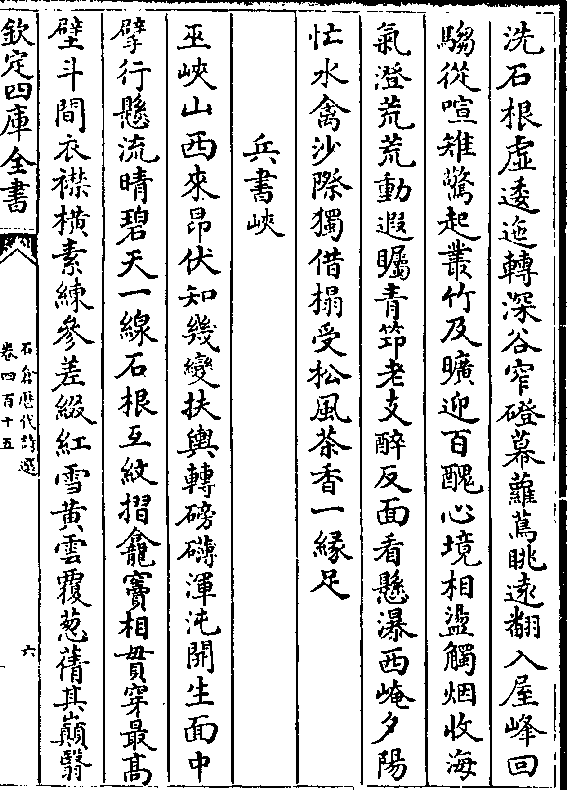 洗石根虚逶迤轉深谷窄磴幕蘿蔦眺遠翻入屋峰回
騶從喧雉驚起叢竹及曠迎百醜心境相盪觸烟收海
氣澄荒荒動遐矚青笻老支醉反面看懸瀑西崦夕陽
忙水禽沙際獨借榻受松風茶香一緣足
兵書峽
巫峽山西來昂伏知幾變扶輿轉磅礴渾沌開生面中
擘行懸流晴碧天一線石根互紋摺龕竇相貫穿最髙
壁斗間衣襟橫素練參差綴紅雪黄雲覆葱蒨其巔翳
欽定四庫全書
石倉歷代詩選
卷四百十五
六